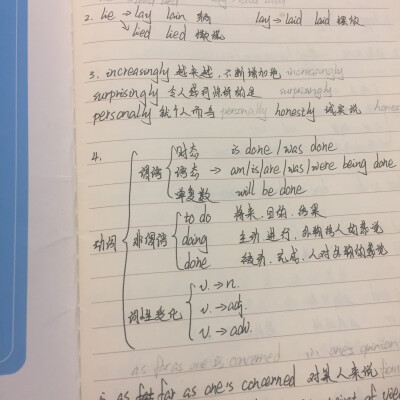 2. lie → lay lain 躺 lay → laid laid 摆放
lied lied 撒谎
3. increasingly 越来越, 不断增加地 increasingly
surprisingly 令人感到惊讶的是 surprisingly
personally 就个人而言 personally honestly 诚实说
4.
时态 is done / was done
谓语 语态 → am/is/are/was/were being done
单复数 will be done
to do 将来、目的、结果
动词 非谓语 doing 主动、进行、
done 被动、完成、
v. → n.
词性变化 v. → adj.
v. → adv.
as far as one is concerned in one's opinion
as far as one's concerned 对某人来说